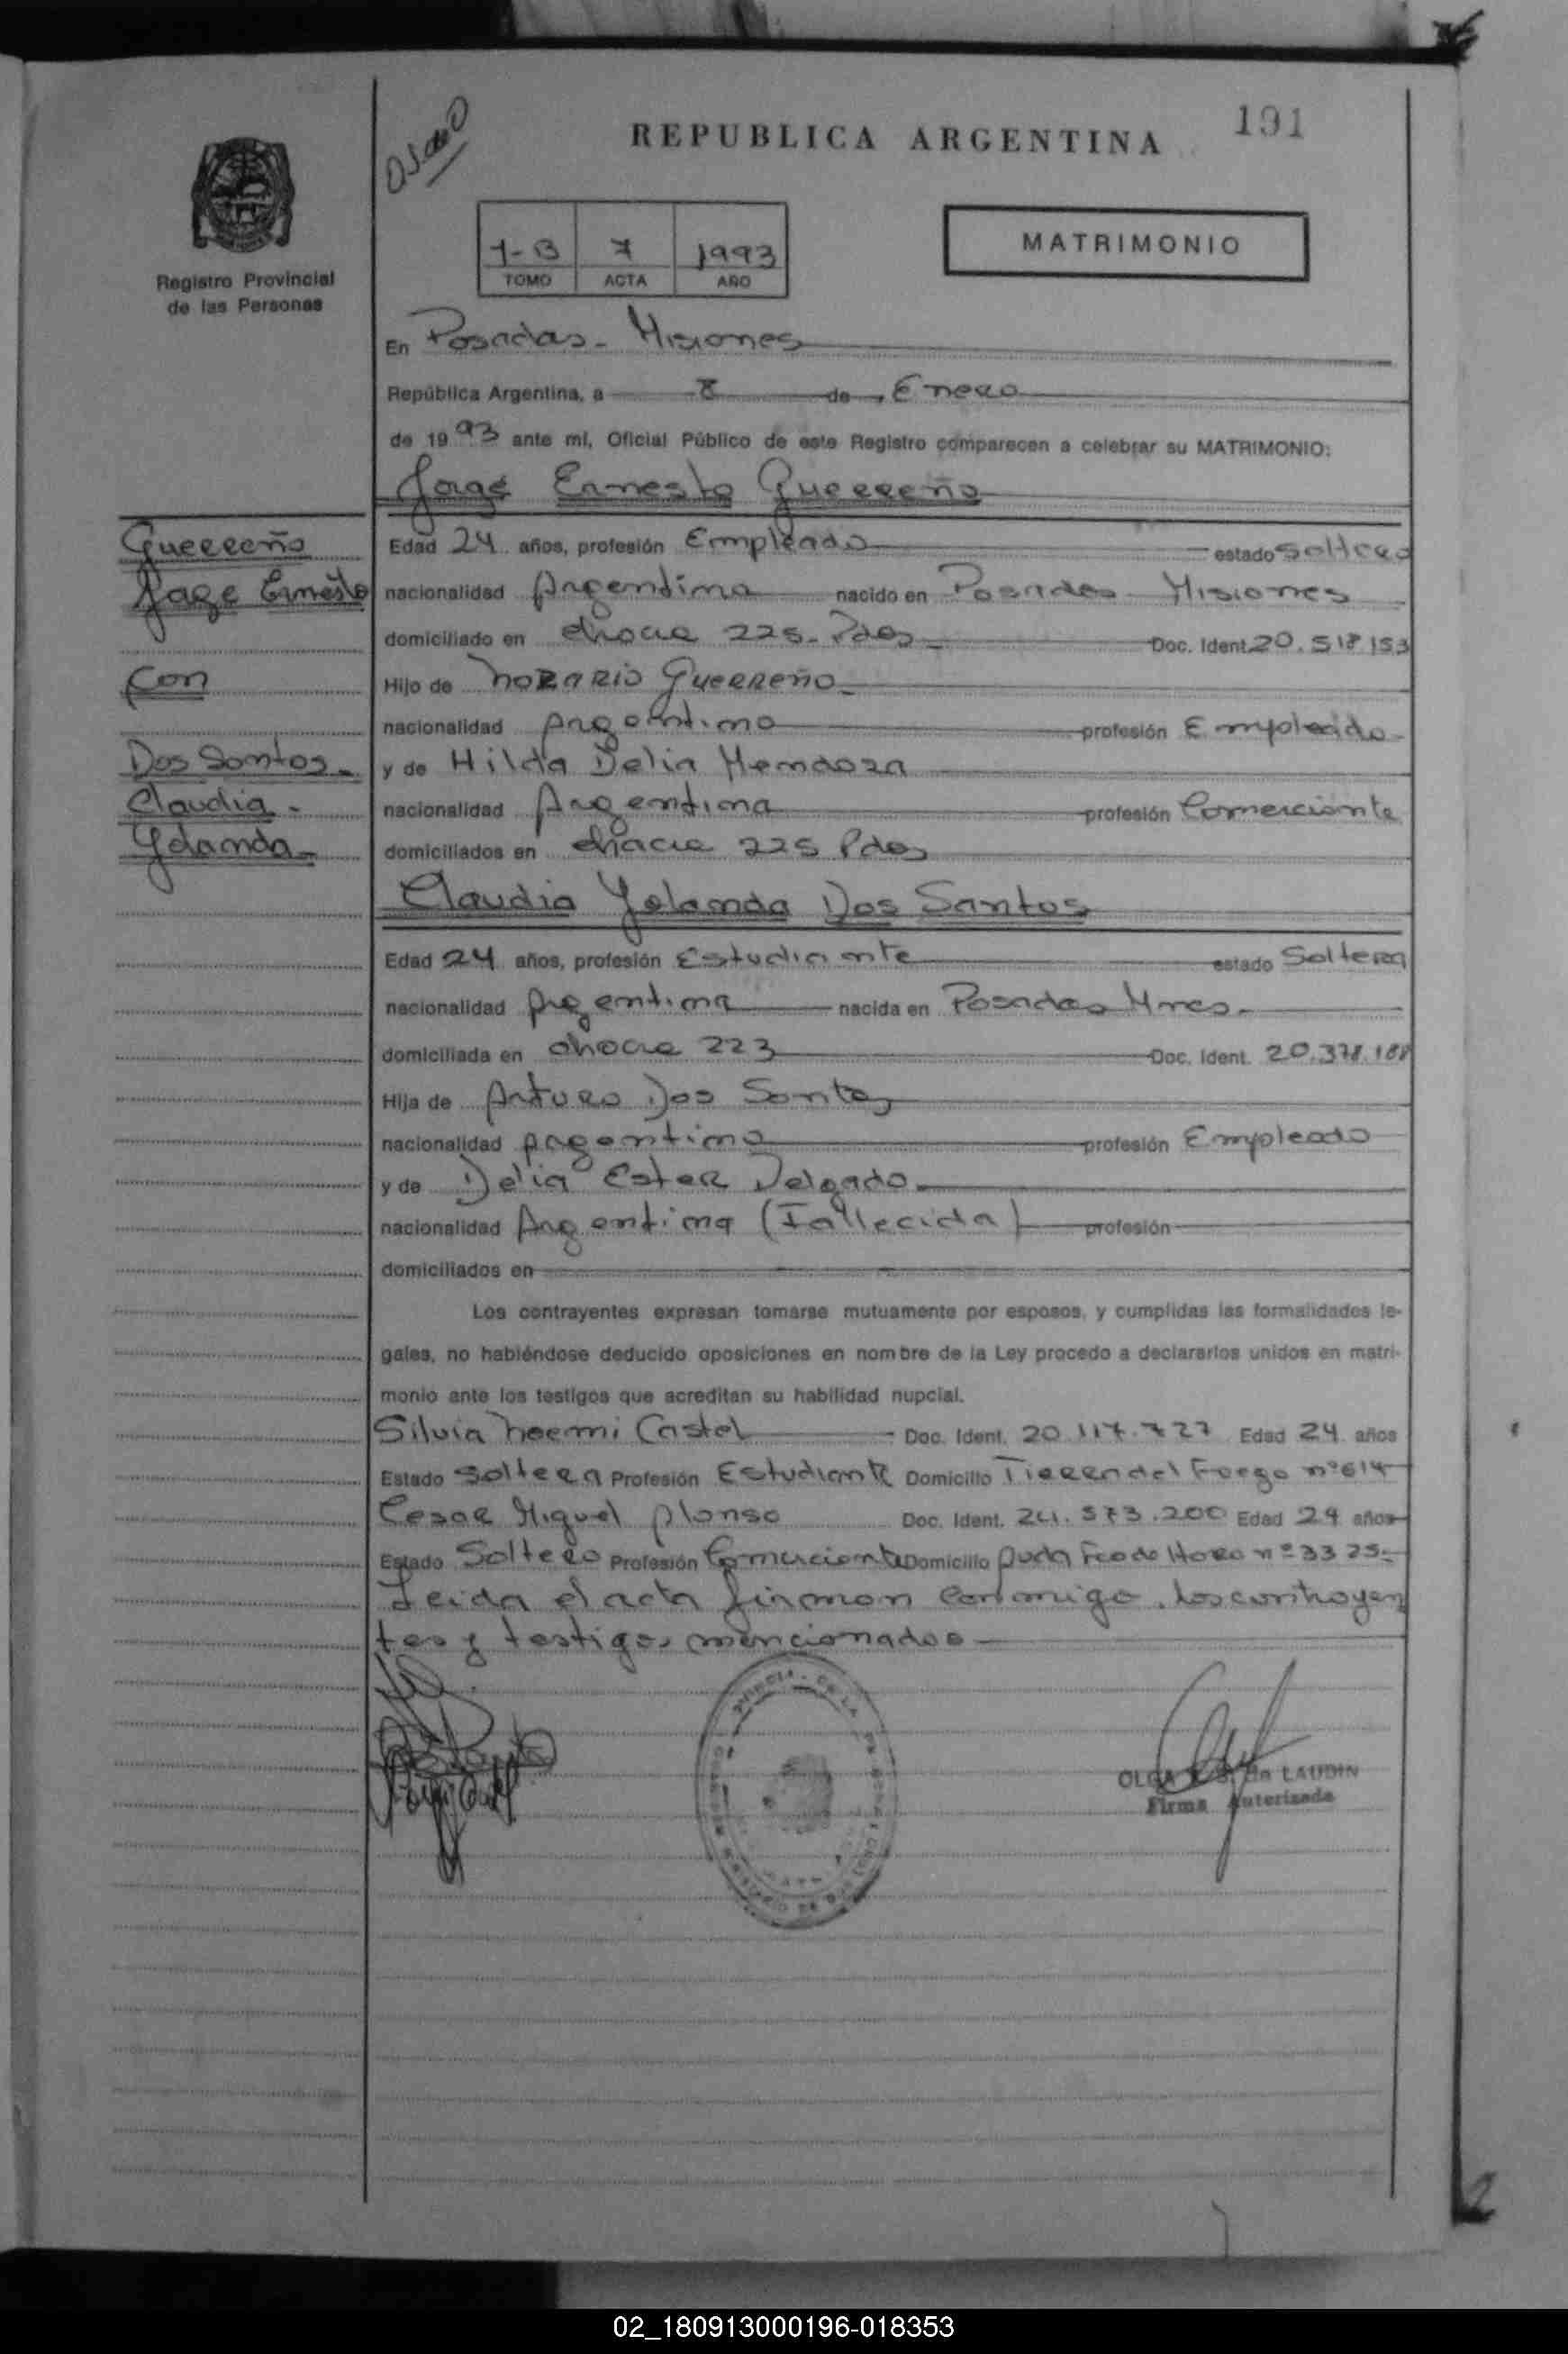 191
REPUBLICA ARGENTINA
Registro Provincial
de las Personas
1-B 7 1993
TOMO ACTA AÑO
MATRIMONIO
En Posadas - Misiones
República Argentina, a 8 de Enero
de 1993 ante mí, Oficial Público de este Registro comparecen a celebrar su MATRIMONIO:
Jorge Ernesto Guerreño
Guerreño
Jorge Ernesto
con
Dos Santos.
Claudia.
Yolanda
Edad 24 años, profesión Empleado estado soltero
nacionalidad Argentina nacido en Posadas Misiones
domiciliado en chacra 225. Pdas Doc. Ident. 20.518.153
Hijo de Guerreño
nacionalidad Argentino profesión Empleado
y de Hilda Delia Mendoza
nacionalidad Argentina profesión Comerciante
domiciliados en chacra 225 Pdas
Claudia Yolanda Dos Santos
Edad 24 años, profesión Estudiante estado Soltera
nacionalidad Argentina nacida en Posadas Mnes.
domiciliada en chacra 223 Doc. Ident. 20.378.188
Hija de Arturo Dos Santos
nacionalidad Argentino profesión Empleado
y de Delia Ester Delgado
nacionalidad Argentina (Fallecida) profesión
domiciliados en
Los contrayentes expresan tomarse mutuamente por esposos, y cumplidas las formalidades le-
gales, no habiéndose deducido oposiciones en nombre de la Ley procedo a declararlos unidos en matri-
monio ante los testigos que acreditan su habilidad nupcial.
Silvia Noemi Castel Doc. Ident. 20.117.727 Edad 24 años
Estado Soltera Profesión Estudiante Domicilio Tierra del Fuego nº 614
Cesar Miguel Alonso Doc. Ident. 24.573.200 Edad 29 años
Estado Soltero Profesión Comerciante Domicilio Avda Fco de Haro nº 3325
Leida el acta firman conmigo, los contrayen
tes y testigos mencionados
OLGA de LAUDIN
Firma Autorizada
02_180913000196-018353